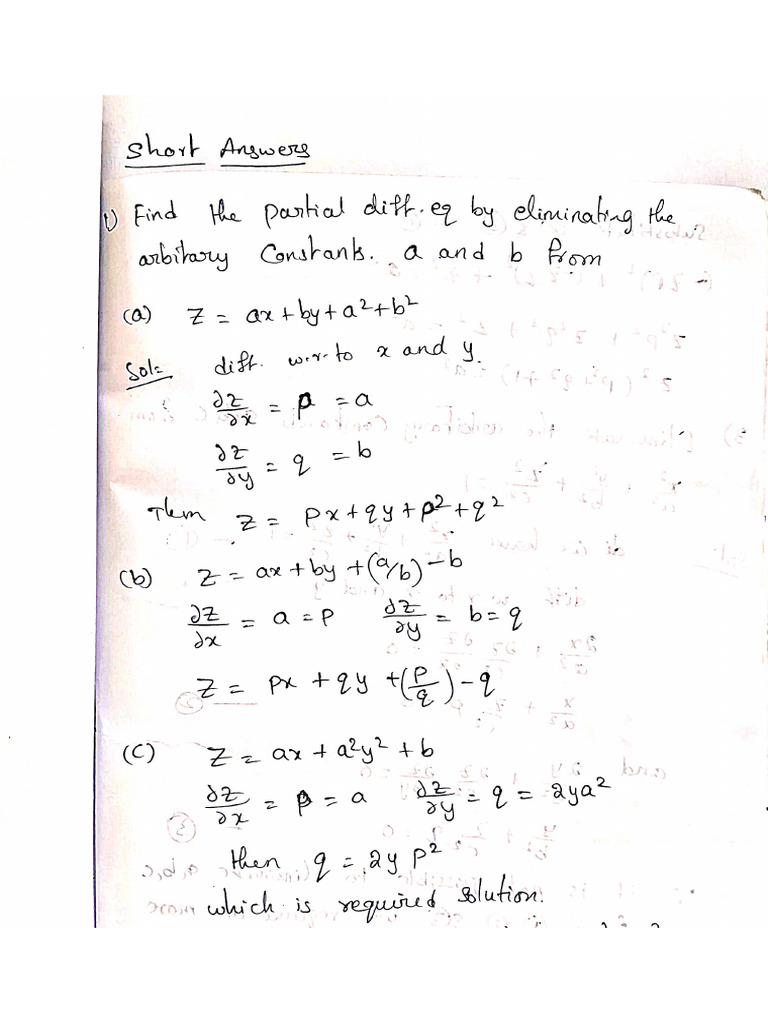 Short Answers
1) Find the partial diff. eq by eliminating the
arbitary Constants. a and b from
(a) z = ax + by + a² + b²
Sol: diff. w.r. to x and y.
∂z/∂x = p = a
∂z/∂y = q = b
Then z = px + qy + p² + q²
(b) z = ax + by + (a/b) - b
∂z/∂x = a = p ∂z/∂y = b = q
z = px + qy + (p/q) - q
(c) z = ax + a²y² + b
∂z/∂x = p = a ∂z/∂y = q = 2ya²
then q = 2y p²
which is required solution.